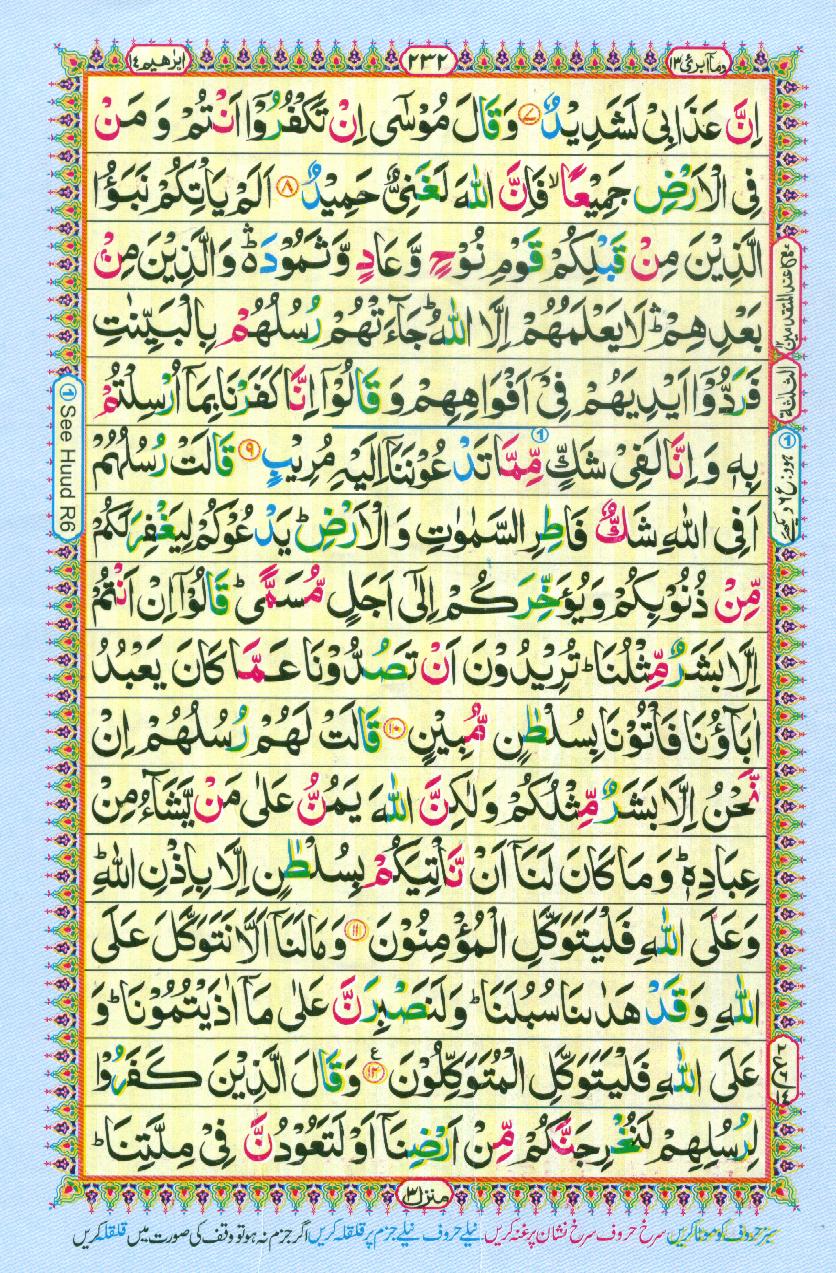 وما أبرئ ١٣
٢٣٢
ابرٰهیم ١٤
اِنَّ عَذَابِیْ لَشَدِیْدٌ ۝۷ وَقَالَ مُوْسٰۤی اِنْ تَكْفُرُوْۤا اَنْتُمْ وَ مَنْ
فِی الْاَرْضِ جَمِیْعًا ۙ فَاِنَّ اللّٰهَ لَغَنِیٌّ حَمِیْدٌ ۝۸ اَلَمْ یَاْتِكُمْ نَبَؤُا
الَّذِیْنَ مِنْ قَبْلِكُمْ قَوْمِ نُوْحٍ وَّ عَادٍ وَّ ثَمُوْدَ ۛؕ وَالَّذِیْنَ مِنْۢ
بَعْدِهِمْ ۛؕ لَا یَعْلَمُهُمْ اِلَّا اللّٰهُ ؕ جَآءَتْهُمْ رُسُلُهُمْ بِالْبَیِّنٰتِ
فَرَدُّوْۤا اَیْدِیَهُمْ فِیْۤ اَفْوَاهِهِمْ وَ قَالُوْۤا اِنَّا كَفَرْنَا بِمَاۤ اُرْسِلْتُمْ
بِهٖ وَ اِنَّا لَفِیْ شَكٍّ مِّمَّا تَدْعُوْنَنَاۤ اِلَیْهِ مُرِیْبٍ ۝۹ قَالَتْ رُسُلُهُمْ
اَفِی اللّٰهِ شَكٌّ فَاطِرِ السَّمٰوٰتِ وَ الْاَرْضِ ؕ یَدْعُوْكُمْ لِیَغْفِرَ لَكُمْ
مِّنْ ذُنُوْبِكُمْ وَ یُؤَخِّرَكُمْ اِلٰۤی اَجَلٍ مُّسَمًّی ؕ قَالُوْۤا اِنْ اَنْتُمْ
اِلَّا بَشَرٌ مِّثْلُنَا ؕ تُرِیْدُوْنَ اَنْ تَصُدُّوْنَا عَمَّا كَانَ یَعْبُدُ
اٰبَآؤُنَا فَاْتُوْنَا بِسُلْطٰنٍ مُّبِیْنٍ ۝۱۰ قَالَتْ لَهُمْ رُسُلُهُمْ اِنْ
نَّحْنُ اِلَّا بَشَرٌ مِّثْلُكُمْ وَ لٰكِنَّ اللّٰهَ یَمُنُّ عَلٰی مَنْ یَّشَآءُ مِنْ
عِبَادِهٖ ؕ وَ مَا كَانَ لَنَاۤ اَنْ نَّاْتِیَكُمْ بِسُلْطٰنٍ اِلَّا بِاِذْنِ اللّٰهِ ؕ
وَعَلَی اللّٰهِ فَلْیَتَوَكَّلِ الْمُؤْمِنُوْنَ ۝۱۱ وَ مَا لَنَاۤ اَلَّا نَتَوَكَّلَ عَلَی
اللّٰهِ وَ قَدْ هَدٰىنَا سُبُلَنَا ؕ وَلَنَصْبِرَنَّ عَلٰی مَاۤ اٰذَیْتُمُوْنَا ؕ وَ
عَلَی اللّٰهِ فَلْیَتَوَكَّلِ الْمُتَوَكِّلُوْنَ ۝۱۲ وَقَالَ الَّذِیْنَ كَفَرُوْا
لِرُسُلِهِمْ لَنُخْرِجَنَّكُمْ مِّنْ اَرْضِنَاۤ اَوْ لَتَعُوْدُنَّ فِیْ مِلَّتِنَا ؕ
منزل ٣
سبز حروف کو موٹا کریں سرخ حروف سرخ نشان پر غنہ کریں نیلے حروف نیلے جزم پر قلقلہ کریں اگر جزم نہ ہو تو وقف کی صورت میں قلقلہ کریں
① See Huud R6